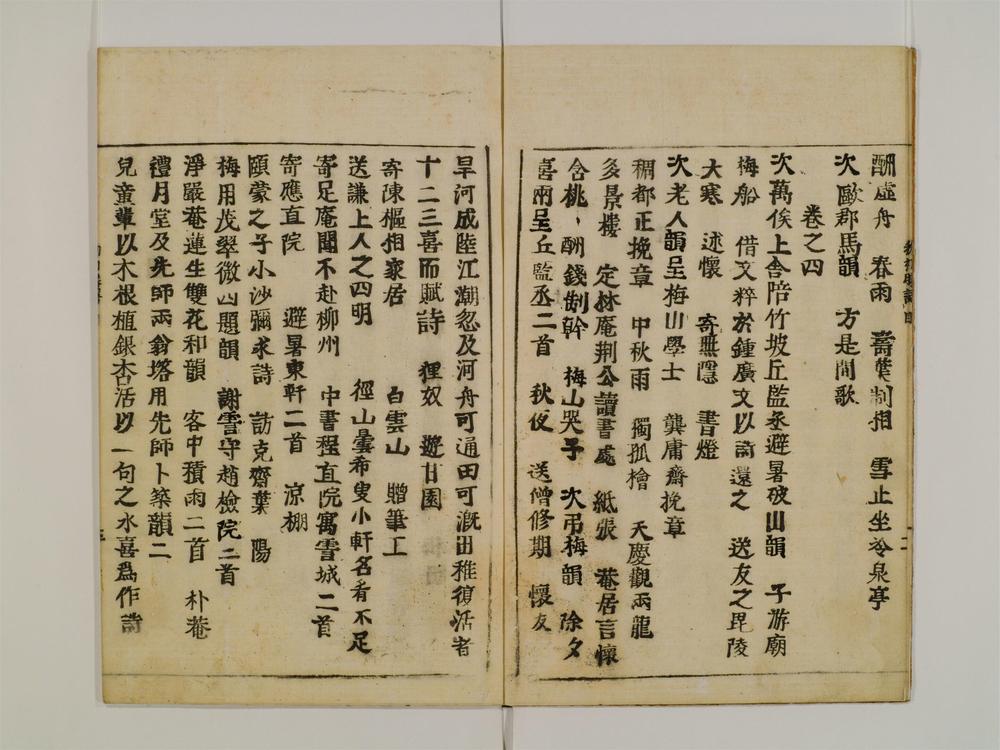 酬虛舟　春雨　壽葉制相　雪止坐冷泉亭
次歐郡馬韻　方是閒歌
卷之四
次萬俟上舍陪竹坡丘監丞避暑破山韻　子游廟
梅船　借文粹於鍾廣文以詩還之　送友之毘陵
大寒　述懷　寄無隱　書燈
次老人韻呈梅山學士　龔庸齋挽章
稠都正挽章　中秋雨　獨孤檜　天慶觀兩龍
多景樓　定林庵荆公讀書處　紙張　菴居言懷
含桃　酬錢制幹　梅山哭子　次弔梅韻　除夕
喜雨呈丘監丞二首　秋夜　送僧修期　懷友
旱河成陸江潮忽及河舟可通田可漑田稚復活者
十二三喜而賦詩　狸奴　遊甘園
寄陳樞相家居　白雲山　贈筆工
送謙上人之四明　徑山曇希叟小軒名看不足
寄足庵聞不赴柳州　中書程直院寓霅城二首
寄應直院　避暑東軒二首　凉棚
頤蒙之子小沙彌求詩　訪克齋葉　陽
梅用茂翠微四題韻　謝霅守趙檢院二首
淨嚴菴蓮生雙花和韻　客中積雨二首　朴菴
禮月堂及先師兩翁塔用先師卜築韻二
兒童輩以木根植銀杏活以一句之水喜爲作詩